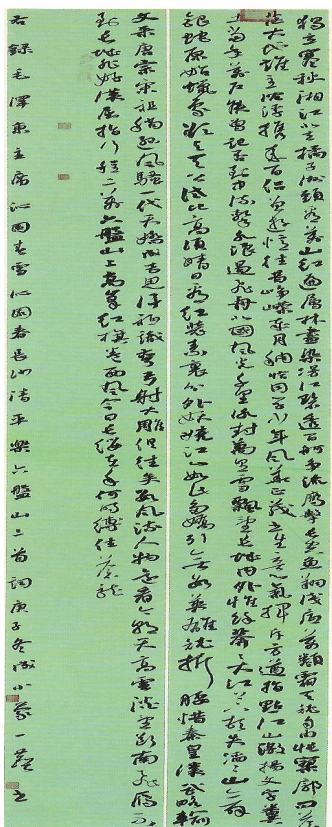 独立寒秋湘江北去橘子洲头看万山红遍层林尽染漫江碧透百舸争流鹰击长空鱼翔浅底万类霜天竞自由怅寥廓问苍
茫大地谁主沉浮携来百侣曾游忆往昔峥嵘岁月稠恰同学少年风华正茂书生意气挥斥方遒指点江山激扬文字粪
土当年万户侯曾记否到中流击水浪遏飞舟北国风光千里冰封万里雪飘望长城内外惟余莽莽大河上下顿失滔滔山舞
银蛇原驰蜡象欲与天公试比高须晴日看红装素裹分外妖娆江山如此多娇引无数英雄竞折腰惜秦皇汉武略输
文采唐宗宋祖稍逊风骚一代天骄成吉思汗只識弯弓射大雕俱往矣数风流人物还看今朝天高雲淡望断南飞雁不
到长城非好漢屈指行程二萬六盤山上高峰红旗漫卷西风今日长缨在手何时缚住苍龙
右錄毛澤東主席沁園春雪沁園春長沙清平樂六盤山三首詞庚子冬